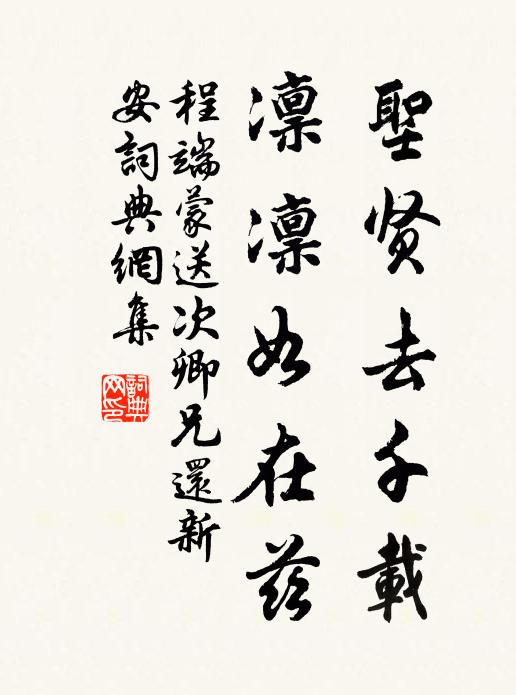 聖贤去千載
凛凛如在兹
程端蒙送次卿兄還新
安詞典網集
詞典
网印